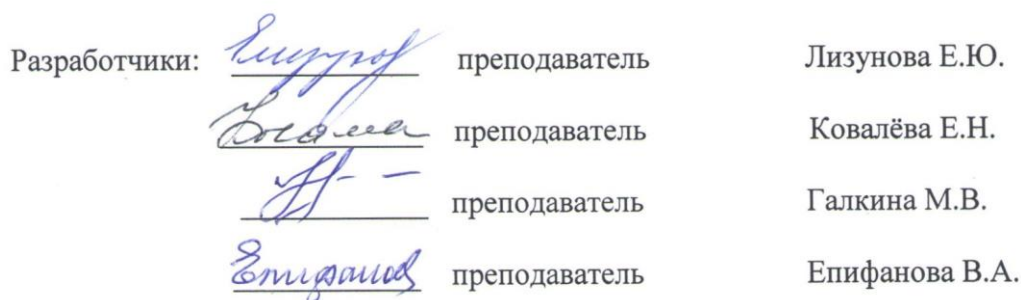 Разработчики: преподаватель Лизунова Е.Ю.
преподаватель Ковалёва Е.Н.
преподаватель Галкина М.В.
преподаватель Епифанова В.А.